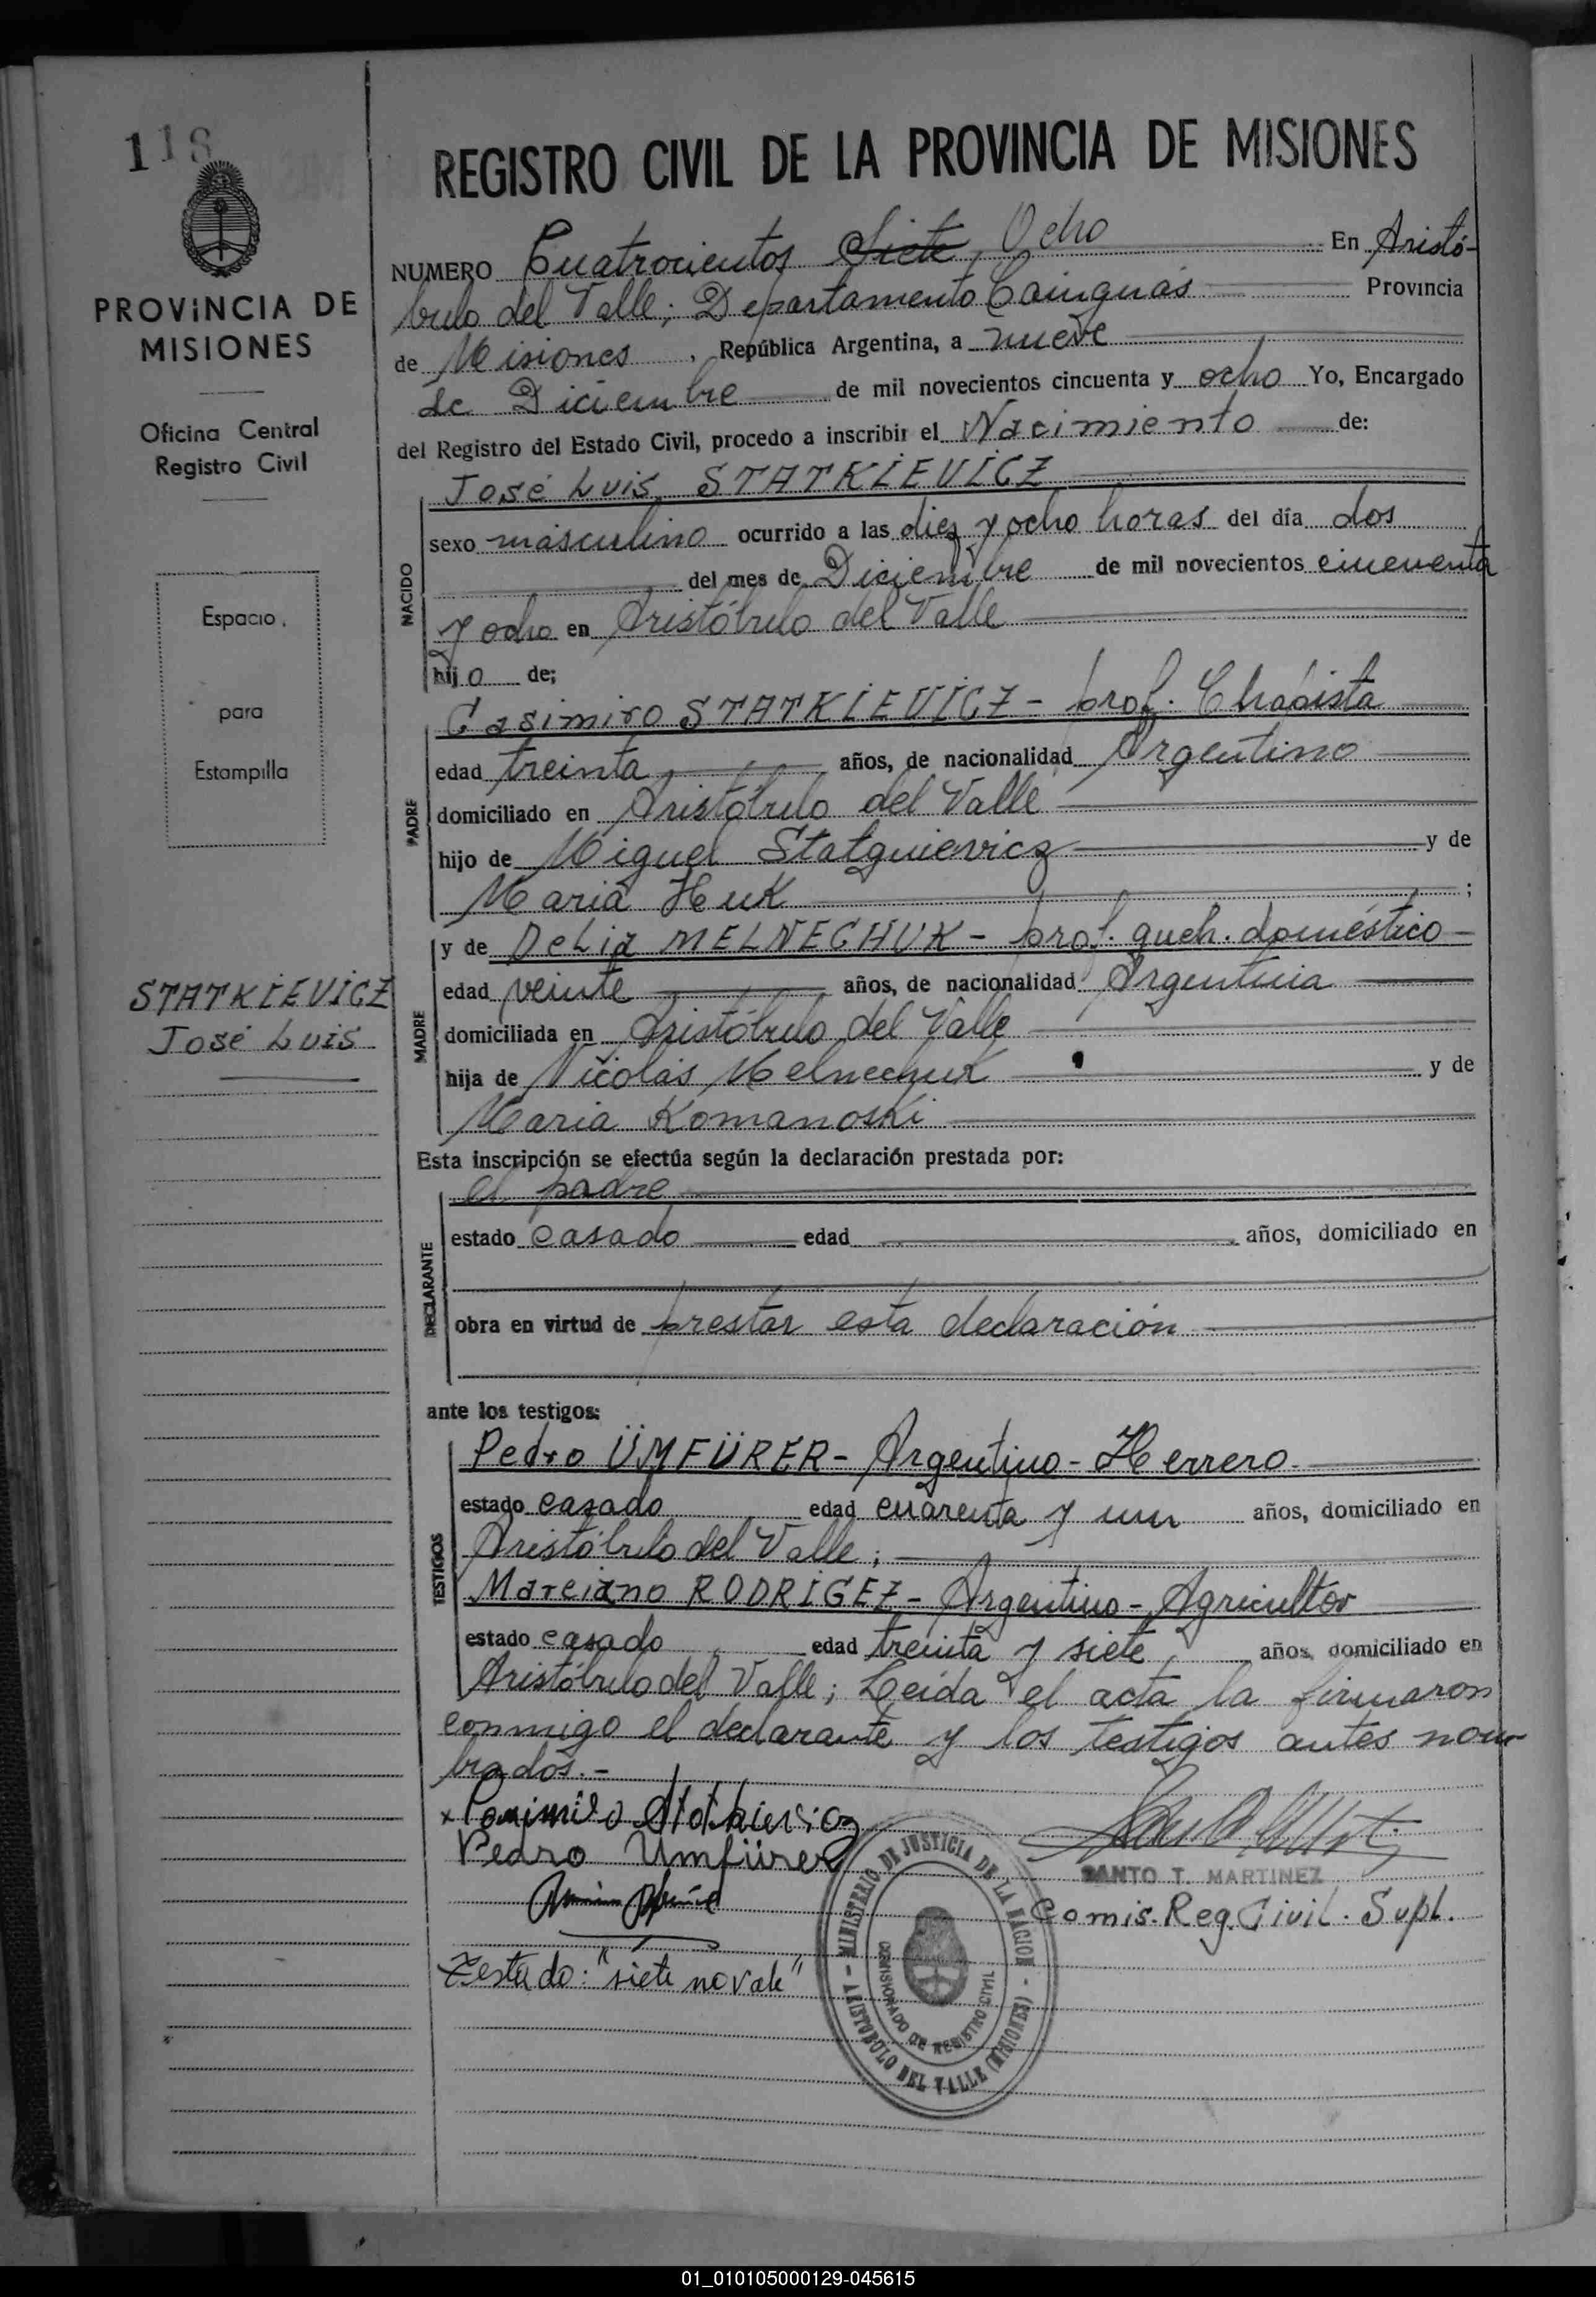 118
REGISTRO CIVIL DE LA PROVINCIA DE MISIONES
PROVINCIA DE
MISIONES
Oficina Central
Registro Civil
Espacio
para
Estampilla
STATKIEVICZ
José Luis
NUMERO Cuatrocientos Siete, Ocho En Aristó-
bulo del Valle; Departamento Cainguás Provincia
de Misiones, República Argentina, a nueve
de Diciembre de mil novecientos cincuenta y ocho Yo, Encargado
del Registro del Estado Civil, procedo a inscribir el Nacimiento de:
José Luis, STATKIEVICZ
NACIDO
sexo masculino ocurrido a las diez y ocho horas del día dos
del mes de Diciembre de mil novecientos cincuenta
y ocho en Aristóbulo del Valle
hijo de;
PADRE
Casimiro STATKIEVICZ - prof. Chapista
edad treinta, años, de nacionalidad Argentino
domiciliado en Aristóbulo del Valle
hijo de Miguel Statquievicz y de
María Huk ;
MADRE
y de Delia MELNECHUK - prof. queh. doméstico -
edad veinte años, de nacionalidad Argentina
domiciliada en Aristóbulo del Valle
hija de Nicolás Melnechuk y de
Maria Komanoski
Esta inscripción se efectúa según la declaración prestada por:
DECLARANTE
el padre
estado casado edad años, domiciliado en
obra en virtud de prestar esta declaración
ante los testigos:
TESTIGOS
Pedro ÜMFÜRER - Argentino - Herrero
estado casado edad cuarenta y un años, domiciliado en
Aristóbulo del Valle;
Marciano RODRIGEZ - Argentino - Agricultor
estado casado, edad treinta y siete, años, domiciliado en
Aristóbulo del Valle; Leída el acta la firmaron
conmigo el declarante y los testigos antes nom-
brados.-
x Casimiro Statkievicz
Pedro Umfürer
SANTO T. MARTINEZ
Comis. Reg. Civil. Supl.
Testado: "siete no vale"
- MINISTERIO DE JUSTICIA DE LA NACION - ARISTOBULO DEL VALLE (MISIONES)
COMISIONADO DE REGISTRO CIVIL
01_010105000129-045615